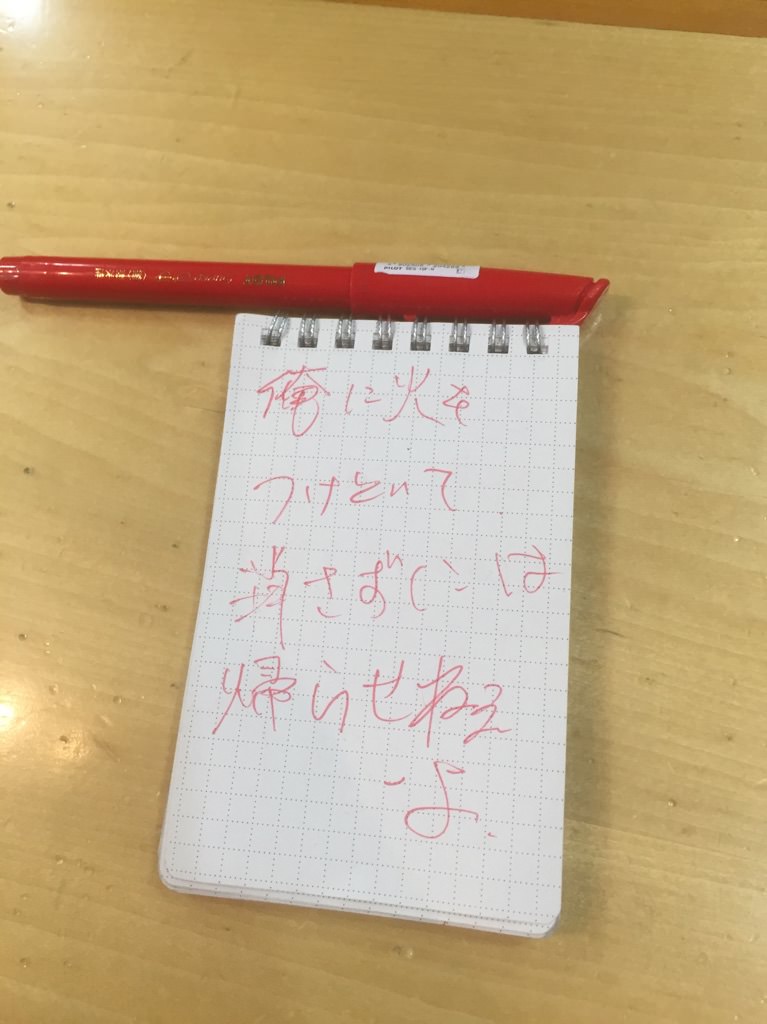 俺に火を
つけといて
消さずには
帰らせねえ
よ.
PILOT